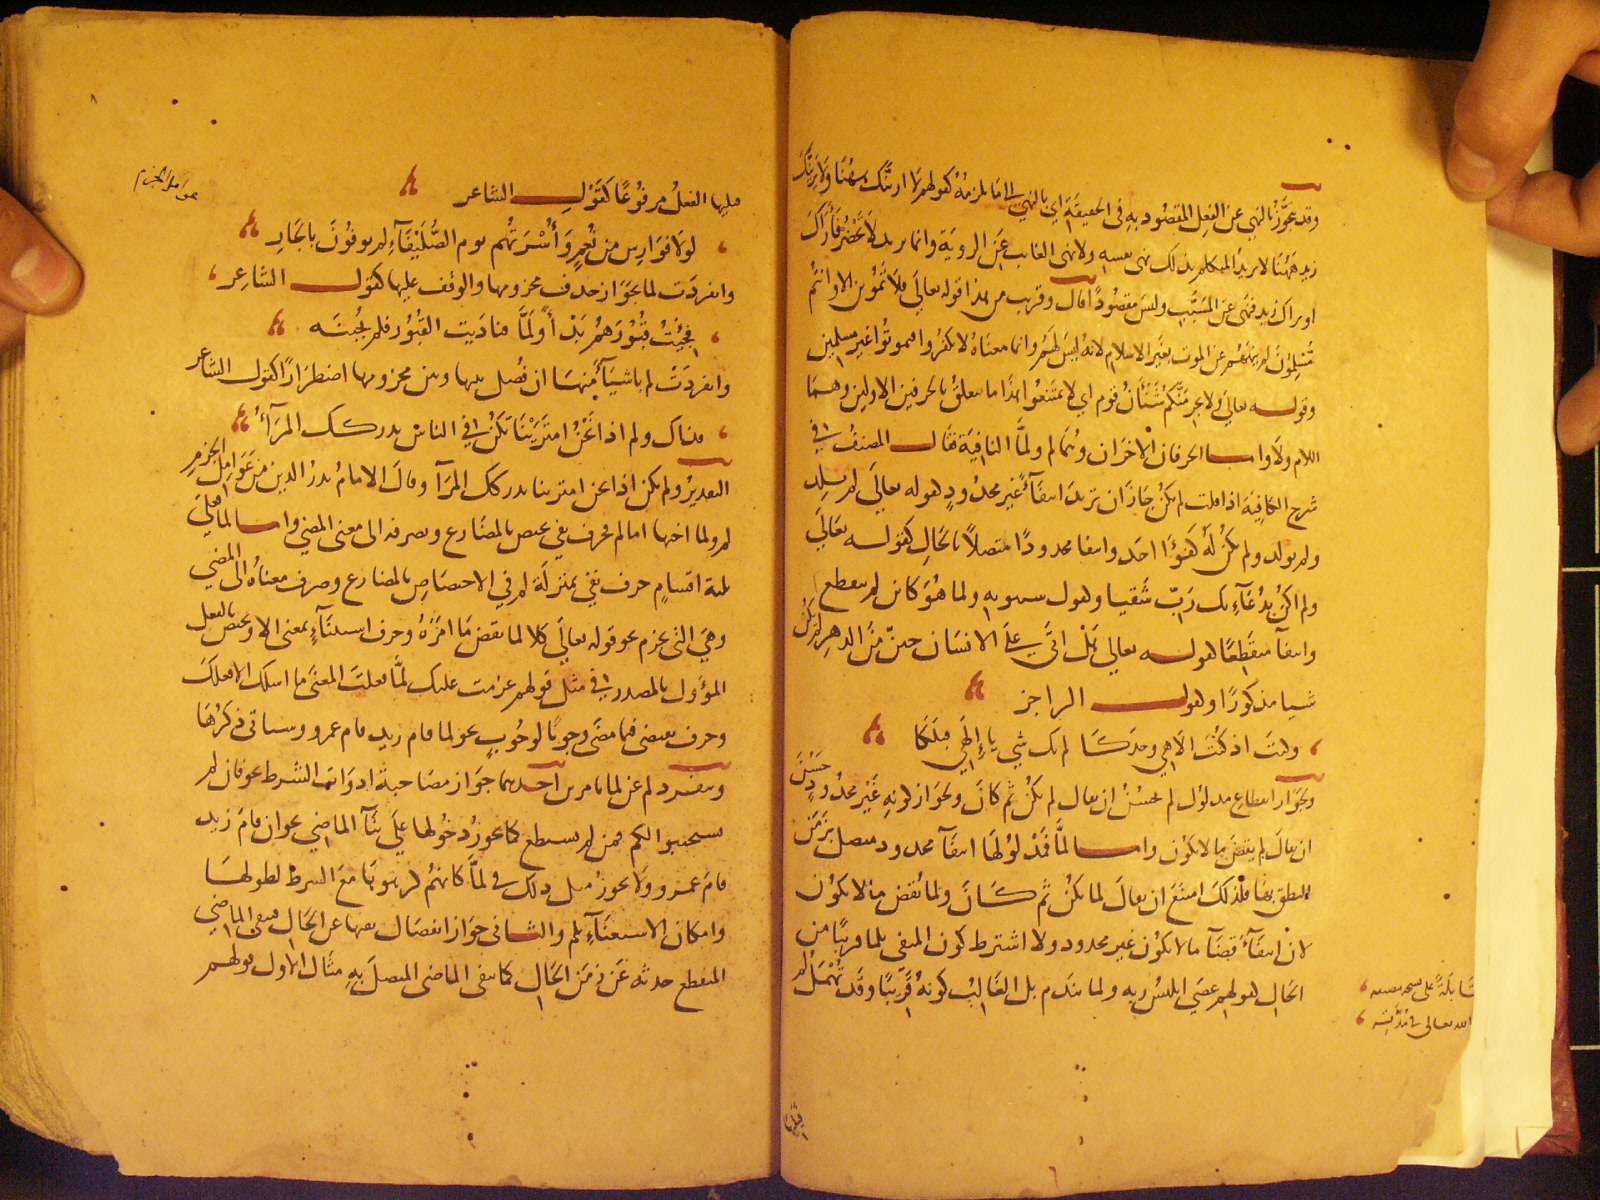 وقد تجوّز بالنهي عن الفعل المقصود به في الحقيقة اي بالنهي الى ما يلزمه كقولهم لا ارينّك ههنا ولا يرينّك
زيد ههنا لا يريد المتكلم بذلك نهي نفسه ولا نهي الغائب عن الروية وانما يريد لا تحضر فاراك
او يراك زيد فنهى عن المسبب وليس مقصودا قال وقريب من هذا قوله تعالى فلا تموتن الا وانتم
مسلمون لم ينههم عن الموت بغير الاسلام لانه ليس لهم وانما معناه لا تكفروا فتموتوا غير مسلمين
وقوله تعالى ولا يجرمنّكم شنآن قوم اي لا تمتنعوا هذا ما يتعلق بالحرفين الاولين وهما
اللام ولا واما الحرفان الاخران وهما لم ولمّا النافية فقال المصنف في
شرح الكافية اذا قلت لم يكن جاز ان تريد انتفاء غير محدود كقوله تعالى لم يلد
ولم يولد ولم يكن له كفوًا احد وانتفا محدودًا متصلًا بالحال كقوله تعالى
ولم اكن بدعائك ربّ شقيا وكقول سيبويه ولما هو كائن لم ينقطع
وانتفآ منقطعًا كقوله تعالى هل اتى على الانسان حين من الدهر لم يكن
شيا مذكورًا وكقول الراجز
وكنتَ اذ كنتَ الاهي وحدكا لم يك شي يا إلهي قبلكا
ولجواز انقطاع مدلول لم يحسن ان يقال لم يكن ثم كان ولجواز كونه غير محدود حسن
ان يقال لم يقض ما لا يكون واما لمّا فمدلولها انتفآ محدود متصل بزمن
النطق بها فلذلك امتنع ان يقال لما يكن ثم كان ولما يقض ما لا يكون
لان انتفآء قضآ ما لا يكون غير محدود ولا اشترط كون المنفى بلما قريبًا من
الحال كقولهم عصى ابليس ربه ولما يندم بل الغالب كونه قريبًا وقد تُهمَل لم
عوامل الجزم
فيليها الفعل مرفوعًا كقول الشاعر
لولا فوارس من نعم وأسرتهم يوم الصليفاء لم يوفون بالجار
وانفردت لما بجواز حذف مجزومها والوقف عليها كقول الشاعر
فجئت قبورهم بدأً ولمّا فناديت القبور فلم يجبنه
وانفردت لم باشيآء منها ان فصل بينها وبين مجزومها اضطرارًا كقول الشاعر
فذاك ولم اذا نحن امترينا تكن في الناس يدركك المرآء
التقدير ولم تكن اذا نحن امترينا يدركك المرآ وقال الامام بدر الدين من عوامل الجزم
لم ولما اختها اما لم فحرف نفي يختص بالمضارع ويصرفه الى معنى المضي واما لما فعلى
ثلثة اقسام حرف نفي بمنزلة لم في الاختصاص بالمضارع وصرف معناه الى المضي
وهي التي تجزم نحو قوله تعالى كلا لما يقض ما امره وحرف استثنآء بمعنى الا ويختص بالفعل
المؤول بالمصدر في مثل قولهم عزمت عليك لمّا فعلت المعنى ما اسلك الا فعلك
وحرف يقتضي فيما مضى وجوبًا لوجوب نحو لما قام زيد قام عمرو وسياتي ذكرها
وتنفرد لم عن لما بامرين احدهما جواز مصاحبة ادوات الشرط نحو فان لم
يستجيبوا لكم فمن لم يستطع كما يجوز دخولها على بنآ الماضي نحو ان قام زيد
قام عمرو ولا يجوز مثل ذلك في لمّا كانهم كرهوها مع الشرط لطولها
وامكان الاستغنآء بلم والثاني جواز انفصال نفيها عن الحال فينفي الماضي
المنقطع حدثه عن زمن الحال كما ينفي الماضي المتصل به مثال الاول قولهم